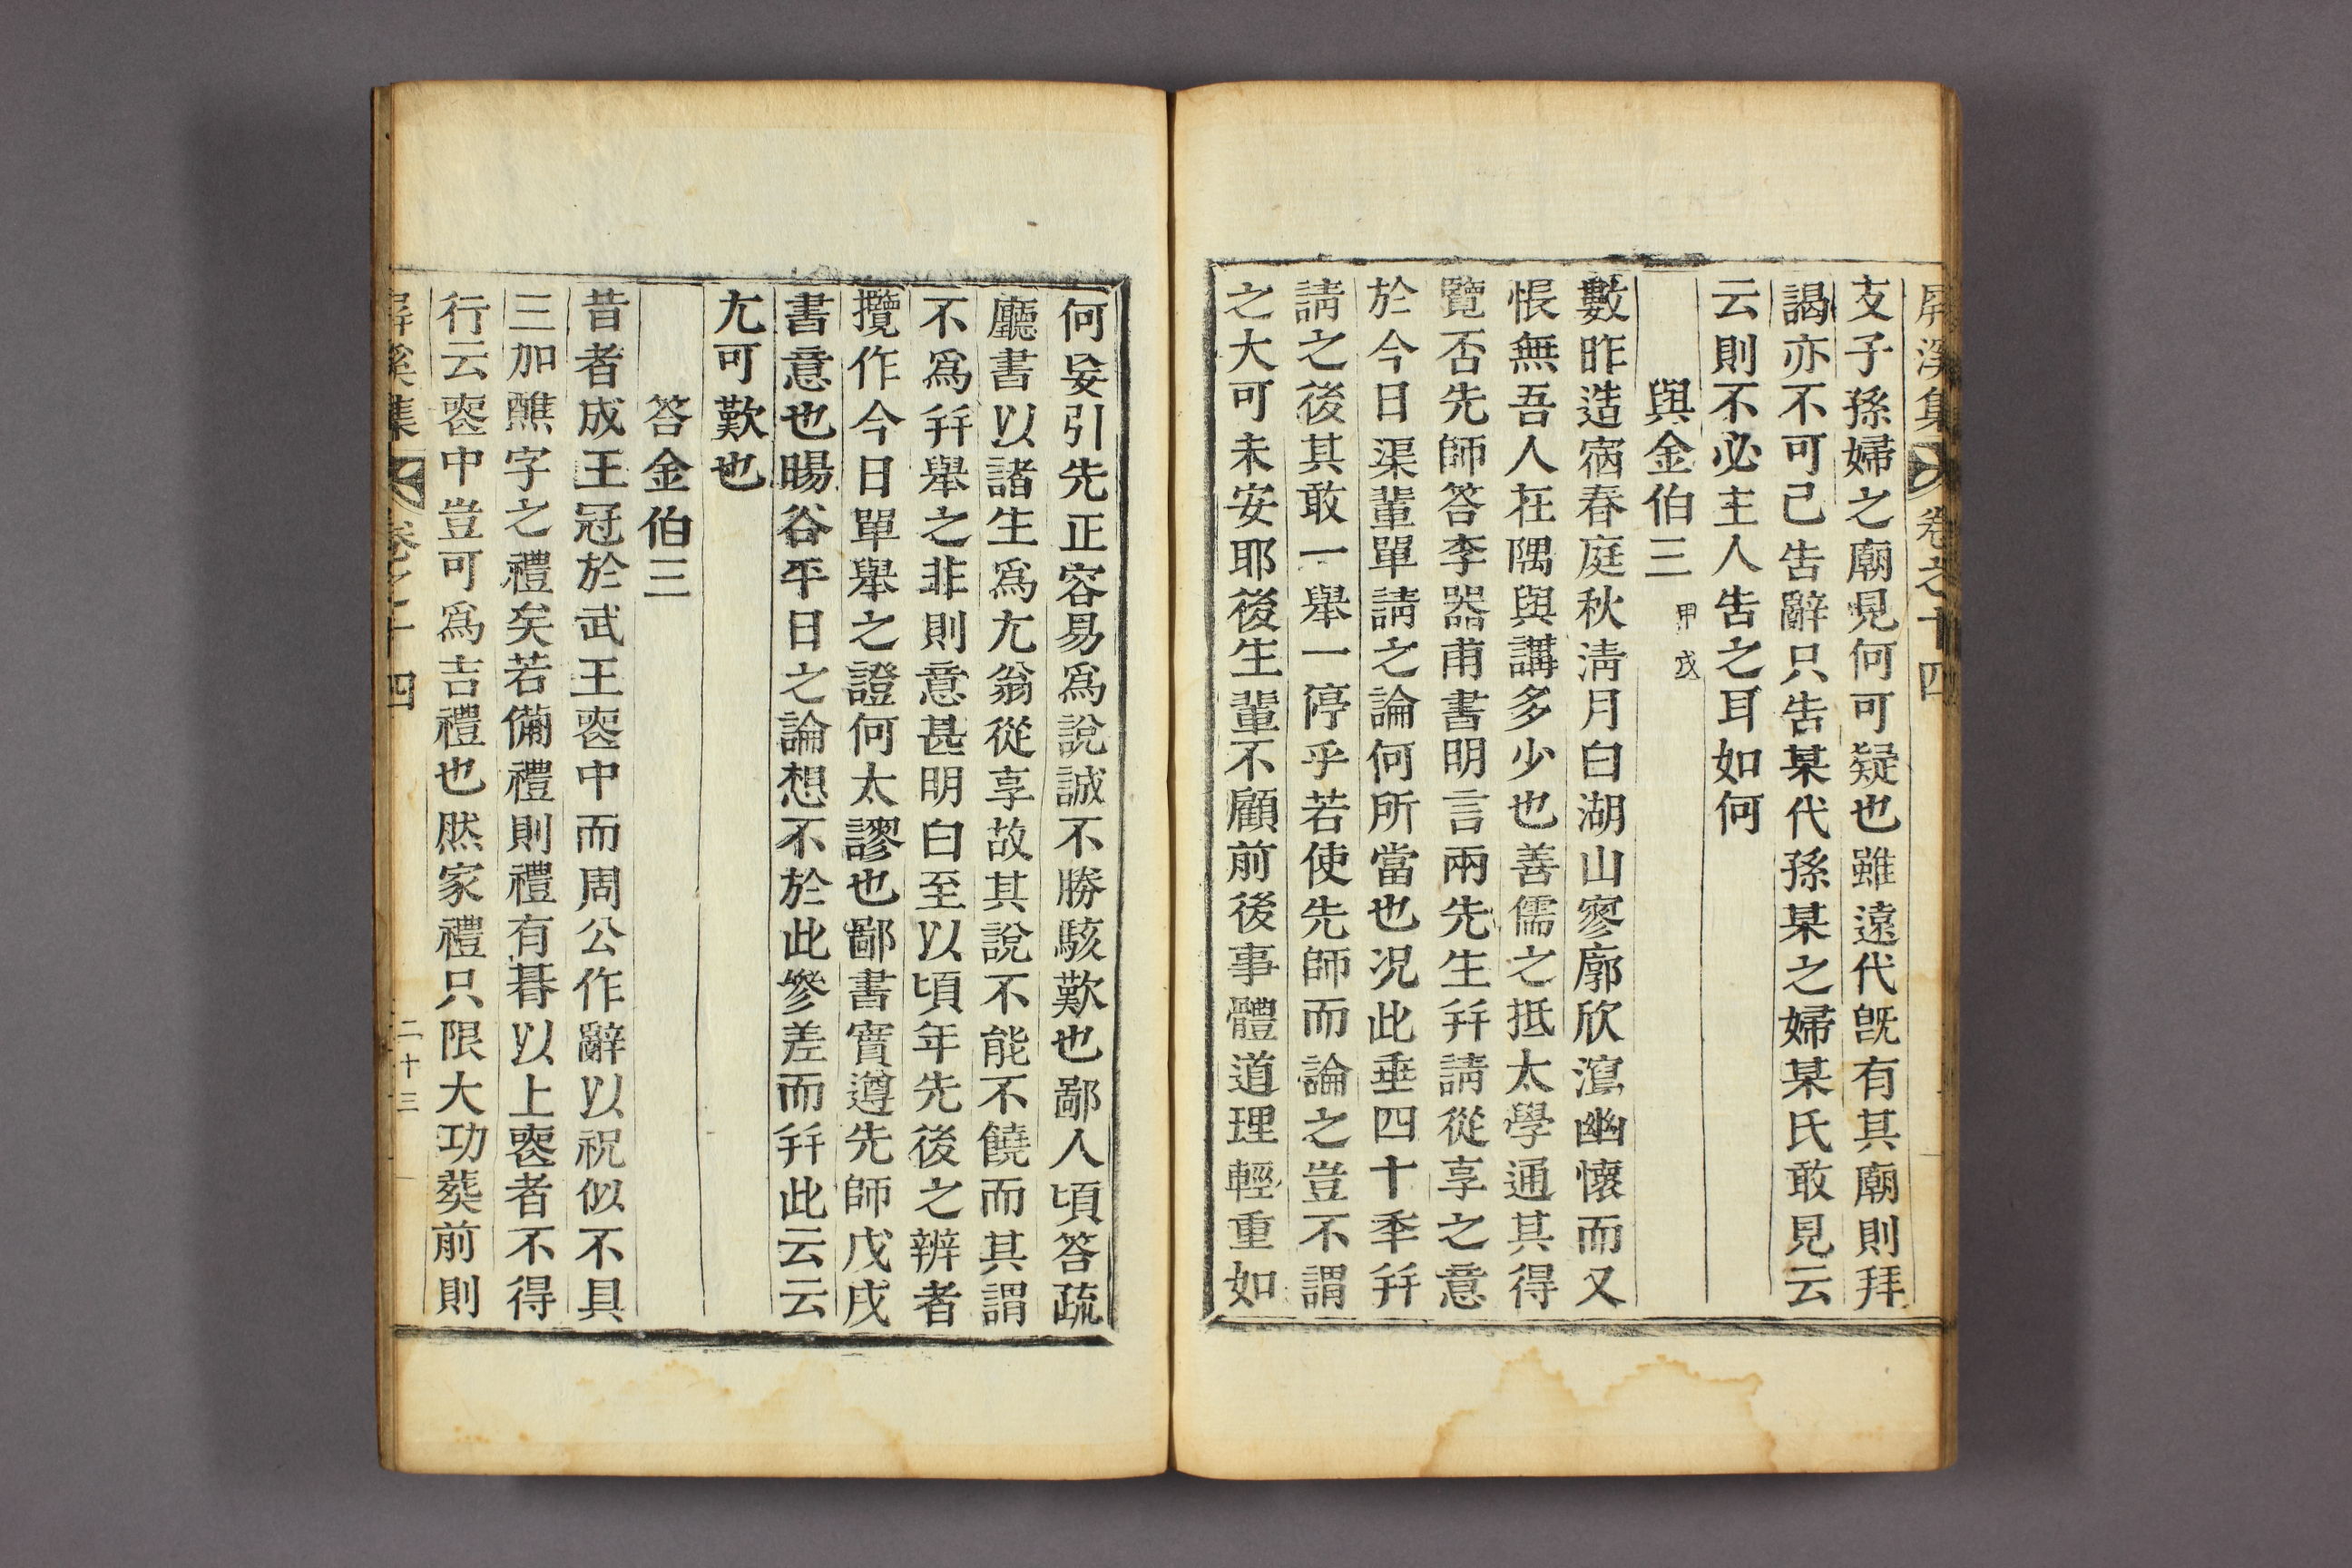 屛溪集 卷之十四
支子孫婦之廟見何可疑也雖遠代旣有其廟則拜
謁亦不可已告辭只告某代孫某之婦某氏敢見云
云則不必主人告之耳如何
與金伯三 甲戌
數昨造宿春庭秋淸月白湖山寥廓欣瀉幽懷而又
悵無吾人在隅與講多少也善儒之抵太學通其得
覽否先師答李器甫書明言兩先生幷請從享之意
於今日渠輩單請之論何所當也况此垂四十年幷
請之後其敢一擧一停乎若使先師而論之豈不謂
之大可未安耶後生輩不顧前後事體道理輕重如
何妄引先正容易爲說誠不勝駭歎也鄙人頃答疏
廳書以諸生爲尢翁從享故其說不能不饒而其謂
不爲幷擧之非則意甚明白至以頃年先後之辨者
攬作今日單擧之證何太謬也鄙書實遵先師戊戌
書意也暘谷平日之論想不於此參差而幷此云云
尢可歎也
答金伯三
昔者成王冠於武王喪中而周公作辭以祝似不具
三加醮字之禮矣若備禮則禮有朞以上喪者不得
行云喪中豈可爲吉禮也然家禮只限大功葬前則
屛溪集 卷之十四 二十三